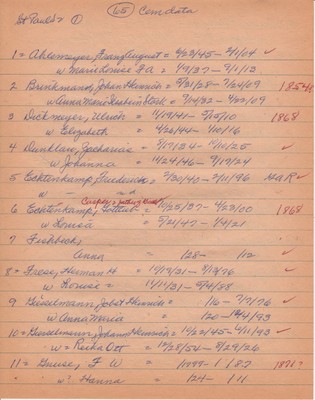 St Paul's ① 65 Cem data
1 = Ahlemeyer, Franz August = 4/23/45 - 2/1/04 ✓
w Marie Louise F A = 1/9/37 - 9/1/13
2 Brinkmann, Johann Heinrich = 8/31/28 - 7/24/09
w Anna Marie = 9/14/32 - 4/22/09
3 Dickmeyer, = 11/19/41 - 2/15/10 1868
w Elizabeth = 4/26/44 - 1/10/16
4 Dunklau, Zacharias = 2/17/34 - 1/10/25 ✓
w Johanna = 11/24/46 - 9/19/24
5 Echtenkamp, Frederick = 2/20/40 - 2/11/96 MAR ✓
w = nd
6 Echtenkamp, Gottlieb = 10/25/37 - 4/23/00 1868
w Louisa = 5/21/47 - 1/4/21
7 Fishbeck,
Anna = 128 - 112 ✓
8 = Frese, Herman H = 12/19/31 - 9/12/96 ✓
w Louise = 11/11/31 - 9/4/88
9 Geiselmann, Jobst Heinrich = 116 - 7/7/76 ✓
w Anna Maria = 120 - 12/4/93
10 = Geiselmann, Johann Heinrich = 10/22/45 - 4/11/93 ✓
w = Rieka Ott = 12/28/54 - 8/29/26
11 = Gruse, F W = 1799 - 1 / 87 1871?
w = Hanna = 124 - 111